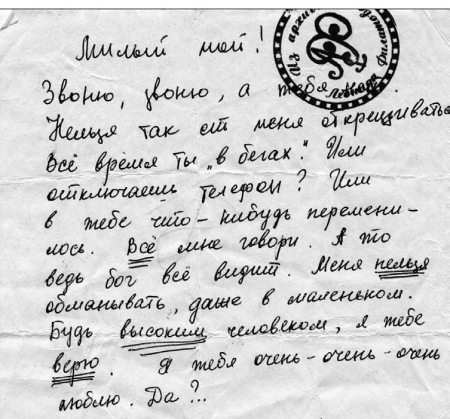 Милый мой!
Из архива Леонида Филатова
Звоню, звоню, а тебя нет.
Нельзя так от меня открещиваться
Всё время ты "в бегах". Или
отключаешь телефон? Или
в тебе что-нибудь перемени-
лось. Всё мне говори. А то
ведь бог всё видит. Меня нельзя
обманывать, даже в маленьком.
Будь высоким человеком, я тебе
верю. Я тебя очень-очень-очень
люблю. Да?..